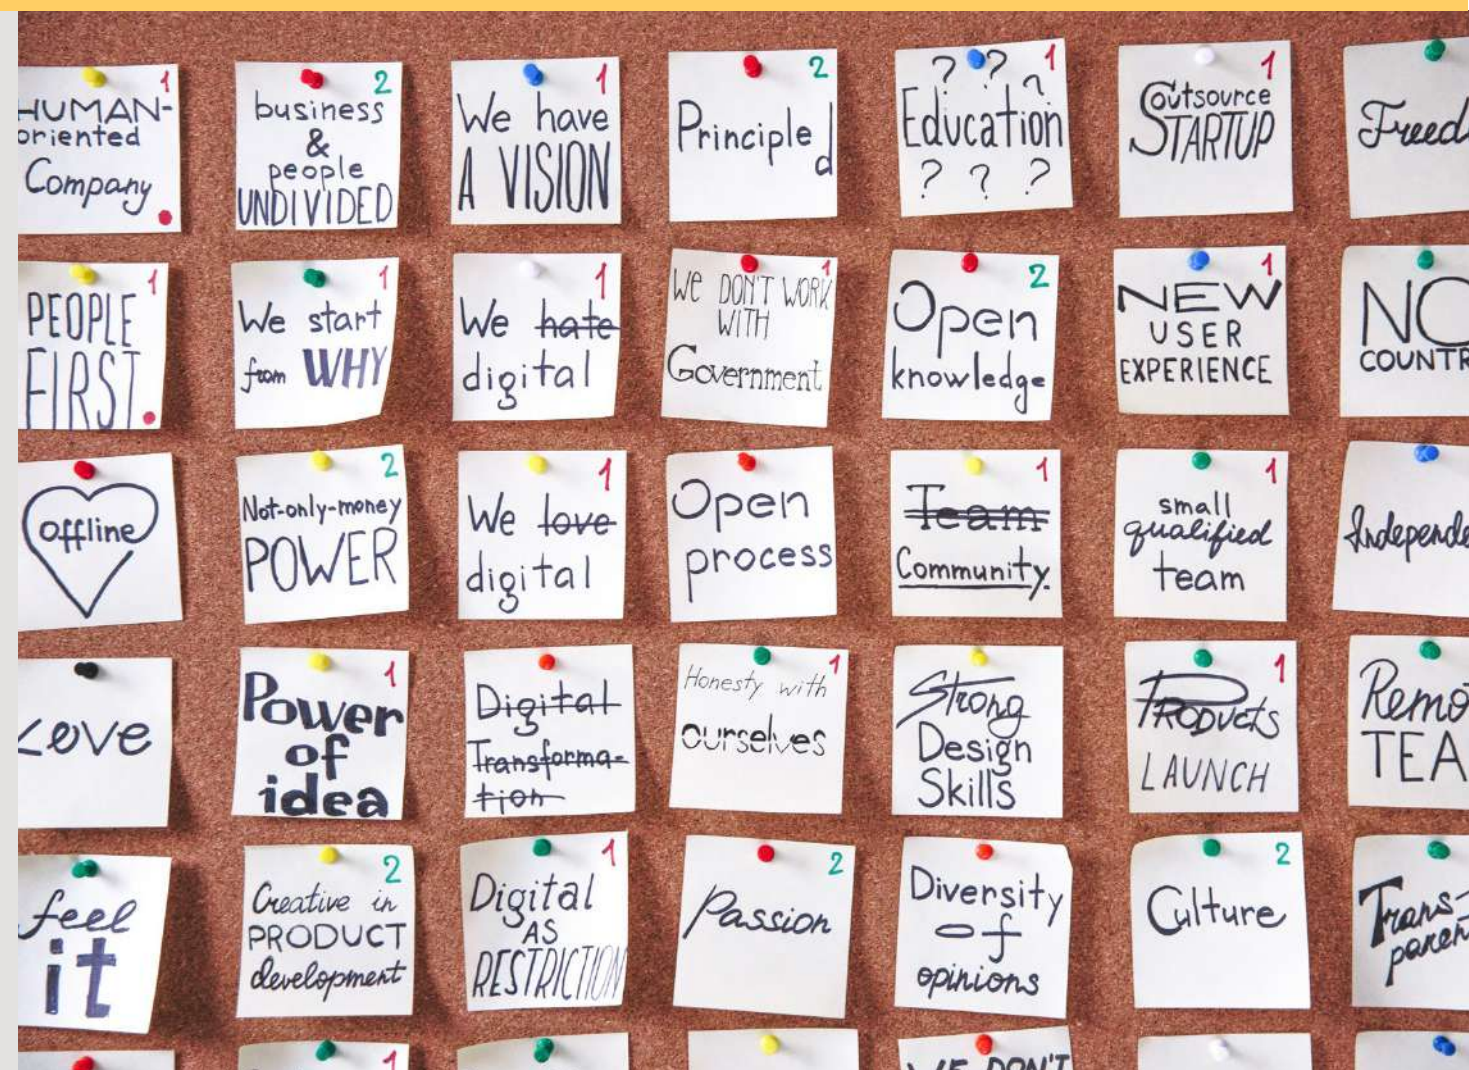 1
HUMAN-
oriented
Company
2
business
&
people
UNDIVIDED
1
We have
A VISION
2
Principled
1
? ? ?
Education
? ? ?
1
Outsource
STARTUP
Freed
1
PEOPLE
FIRST.
1
We start
from WHY
1
We hate
digital
1
WE DON'T WORK
WITH
Government
2
Open
knowledge
1
NEW
USER
EXPERIENCE
NO
COUNTR
offline
2
Not-only-money
POWER
1
We love
digital
Open
process
1
Team
Community.
1
small
qualified
team
Independe
Love
1
Power
of
idea
Digital
Transforma-
tion
1
Honesty with
ourselves
Strong
Design
Skills
1
PRODUCTS
LAUNCH
Remo
TEA
feel
it
2
Creative in
PRODUCT
development
1
Digital
AS
RESTRICTION
2
Passion
Diversity
of
opinions
2
Culture
Trans-
paren
1
WE DON'T